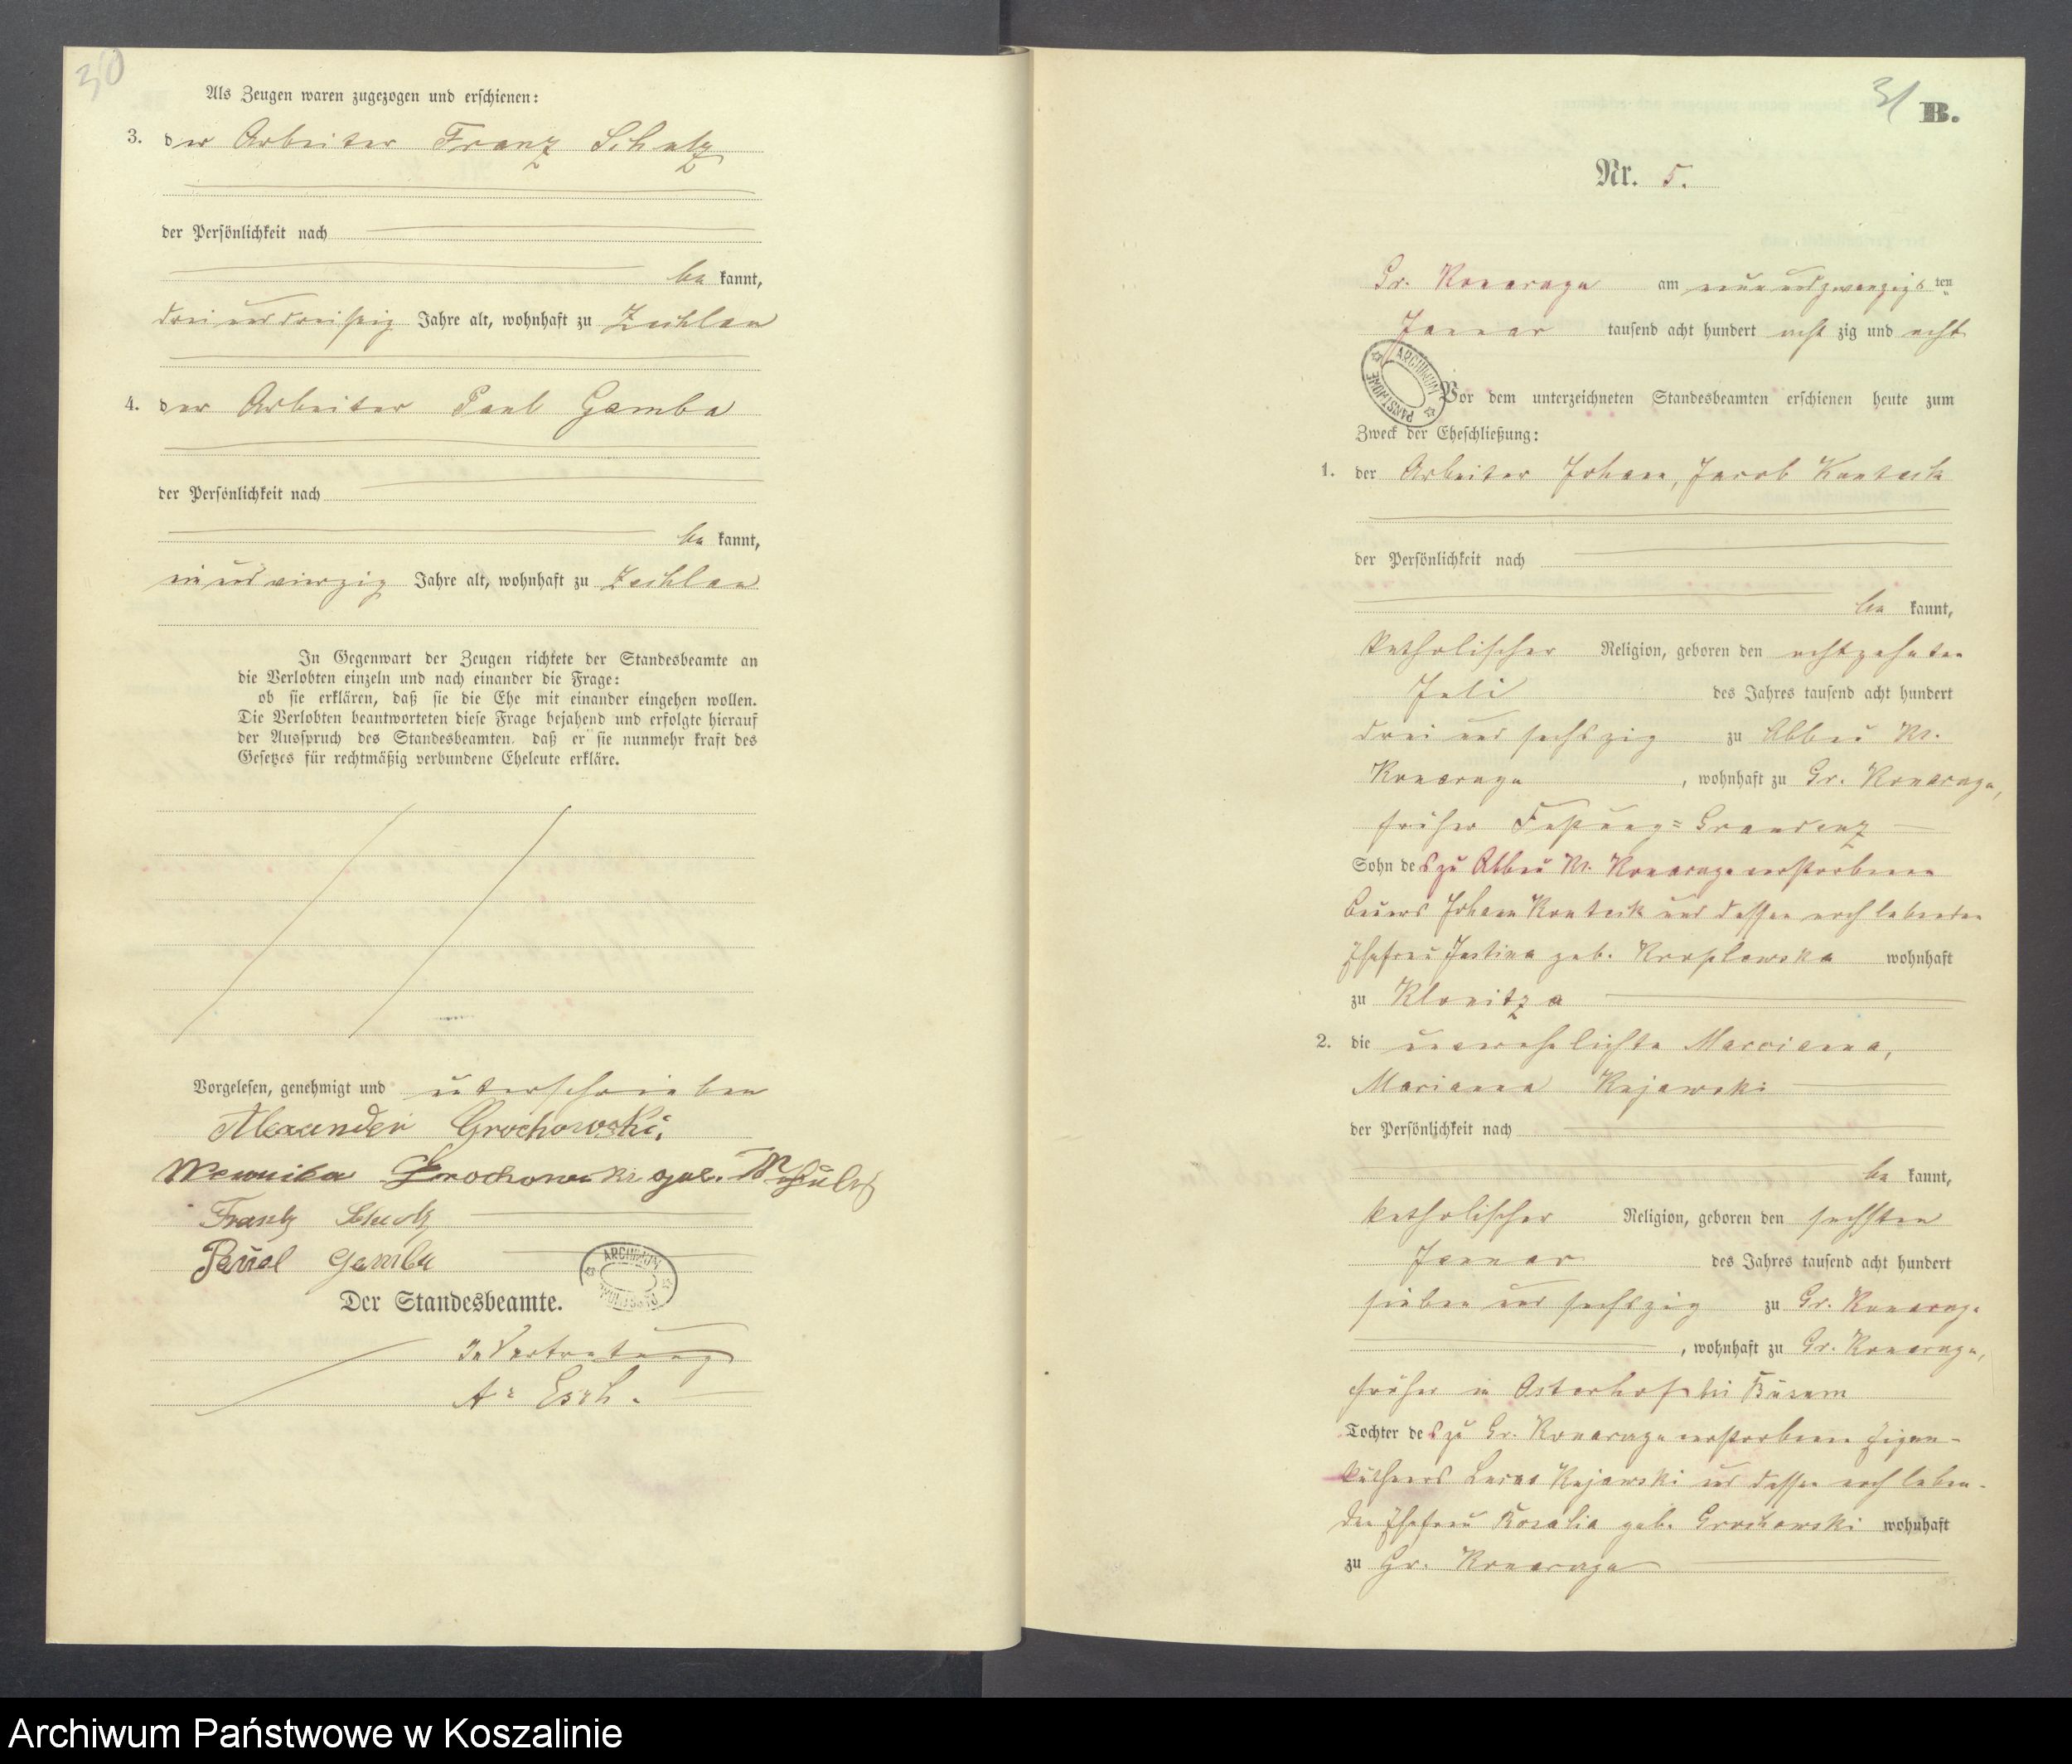 30
Als Zeugen waren zugezogen und erschienen:
3. der Arbeiter Franz Schulz
der Persönlichkeit nach
be kannt,
drei und dreißig Jahre alt, wohnhaft zu Zechlau
4. der Arbeiter Paul Gamba
der Persönlichkeit nach
be kannt,
ein und vierzig Jahre alt, wohnhaft zu Zechlau
In Gegenwart der Zeugen richtete der Standesbeamte an
die Verlobten einzeln und nach einander die Frage:
ob sie erklären, daß sie die Ehe mit einander eingehen wollen.
Die Verlobten beantworteten diese Frage bejahend und erfolgte hierauf
der Ausspruch des Standesbeamten, daß er sie nunmehr kraft des
Gesetzes für rechtmäßig verbundene Eheleute erkläre.
Vorgelesen, genehmigt und unterschrieben
Alexander Grochowski.
Grochowski geb.
Frantz Schulz
Paul Gamba
ARCHIWUM
Der Standesbeamte.
In Vertretung
31 B.
Nr. 5.
Gr. Konarczyn am neun und zwanzigs ten
Januar tausend acht hundert acht zig und acht
ARCHIWUM PAŃSTWOWE
Vor dem unterzeichneten Standesbeamten erschienen heute zum
Zweck der Eheschließung:
1. der Arbeiter Johann, Jacob Konteck
der Persönlichkeit nach
be kannt,
katholischer Religion, geboren den achtzehnten
Juli des Jahres tausend acht hundert
drei und sechszig zu Abbau Kl.
Konarczyn, wohnhaft zu Gr. Konarczyn,
früher Festung=Graudenz
Sohn des zu Abbau Kl. Konarczyn verstorbenen
Johann Konteck und dessen noch lebenden
Ehefrau Justina geb. wohnhaft
zu Klonitza
2. die unverehelichte
Marianna Kujawski
der Persönlichkeit nach
be kannt,
katholischer Religion, geboren den sechsten
Januar des Jahres tausend acht hundert
sieben und sechszig zu Gr. Konarczyn
, wohnhaft zu Gr. Konarczyn,
früher in Osterhof bei Büsum
Tochter des zu Gr. Konarczyn verstorbenen Eigen-
käthners Lucas Kujawski und dessen noch leben-
den Ehefrau Rosalia geb. Grochowski wohnhaft
zu Gr. Konarczyn
Archiwum Państwowe w Koszalinie